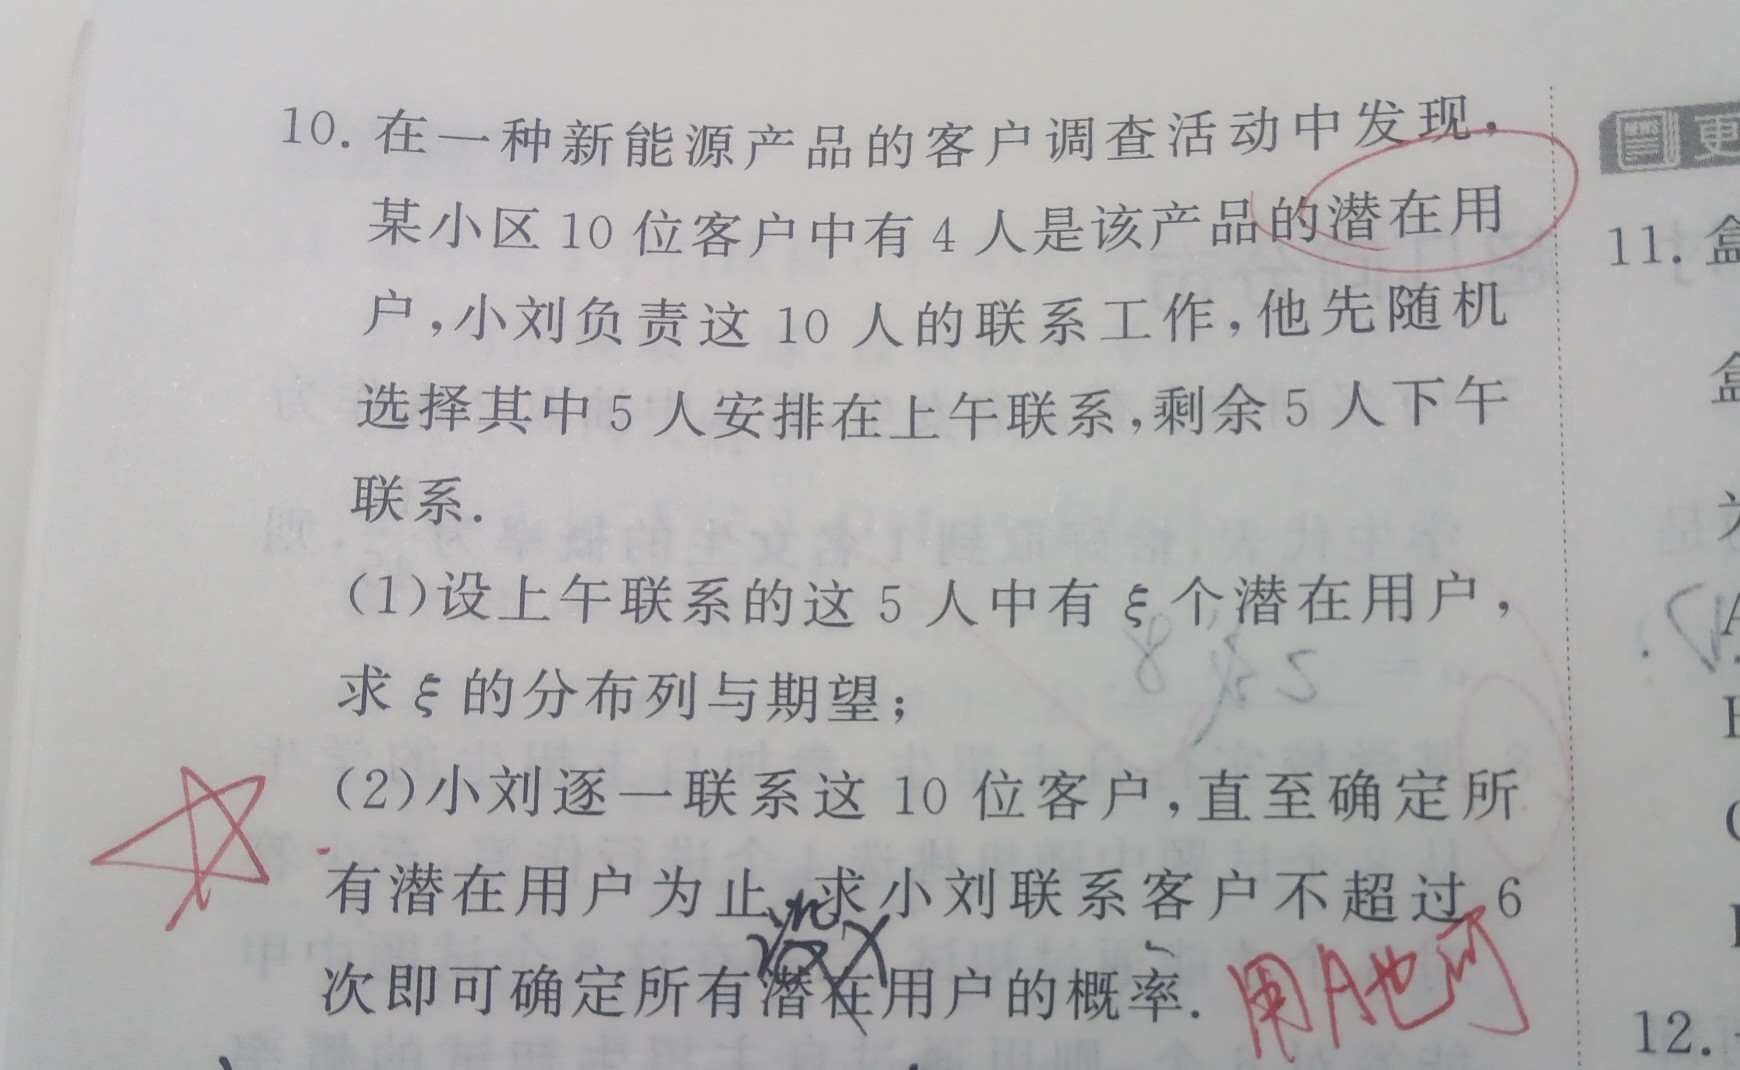 10. 在一种新能源产品的客户调查活动中发现,
某小区 10 位客户中有 4 人是该产品的潜在用
户,小刘负责这 10 人的联系工作,他先随机
选择其中 5 人安排在上午联系,剩余 5 人下午
联系.
(1)设上午联系的这 5 人中有 ξ 个潜在用户,
求 ξ 的分布列与期望;
(2)小刘逐一联系这 10 位客户,直至确定所
有潜在用户为止,求小刘联系客户不超过 6
次即可确定所有潜在用户的概率.
用A也可
更
11. 盒
盒
12.